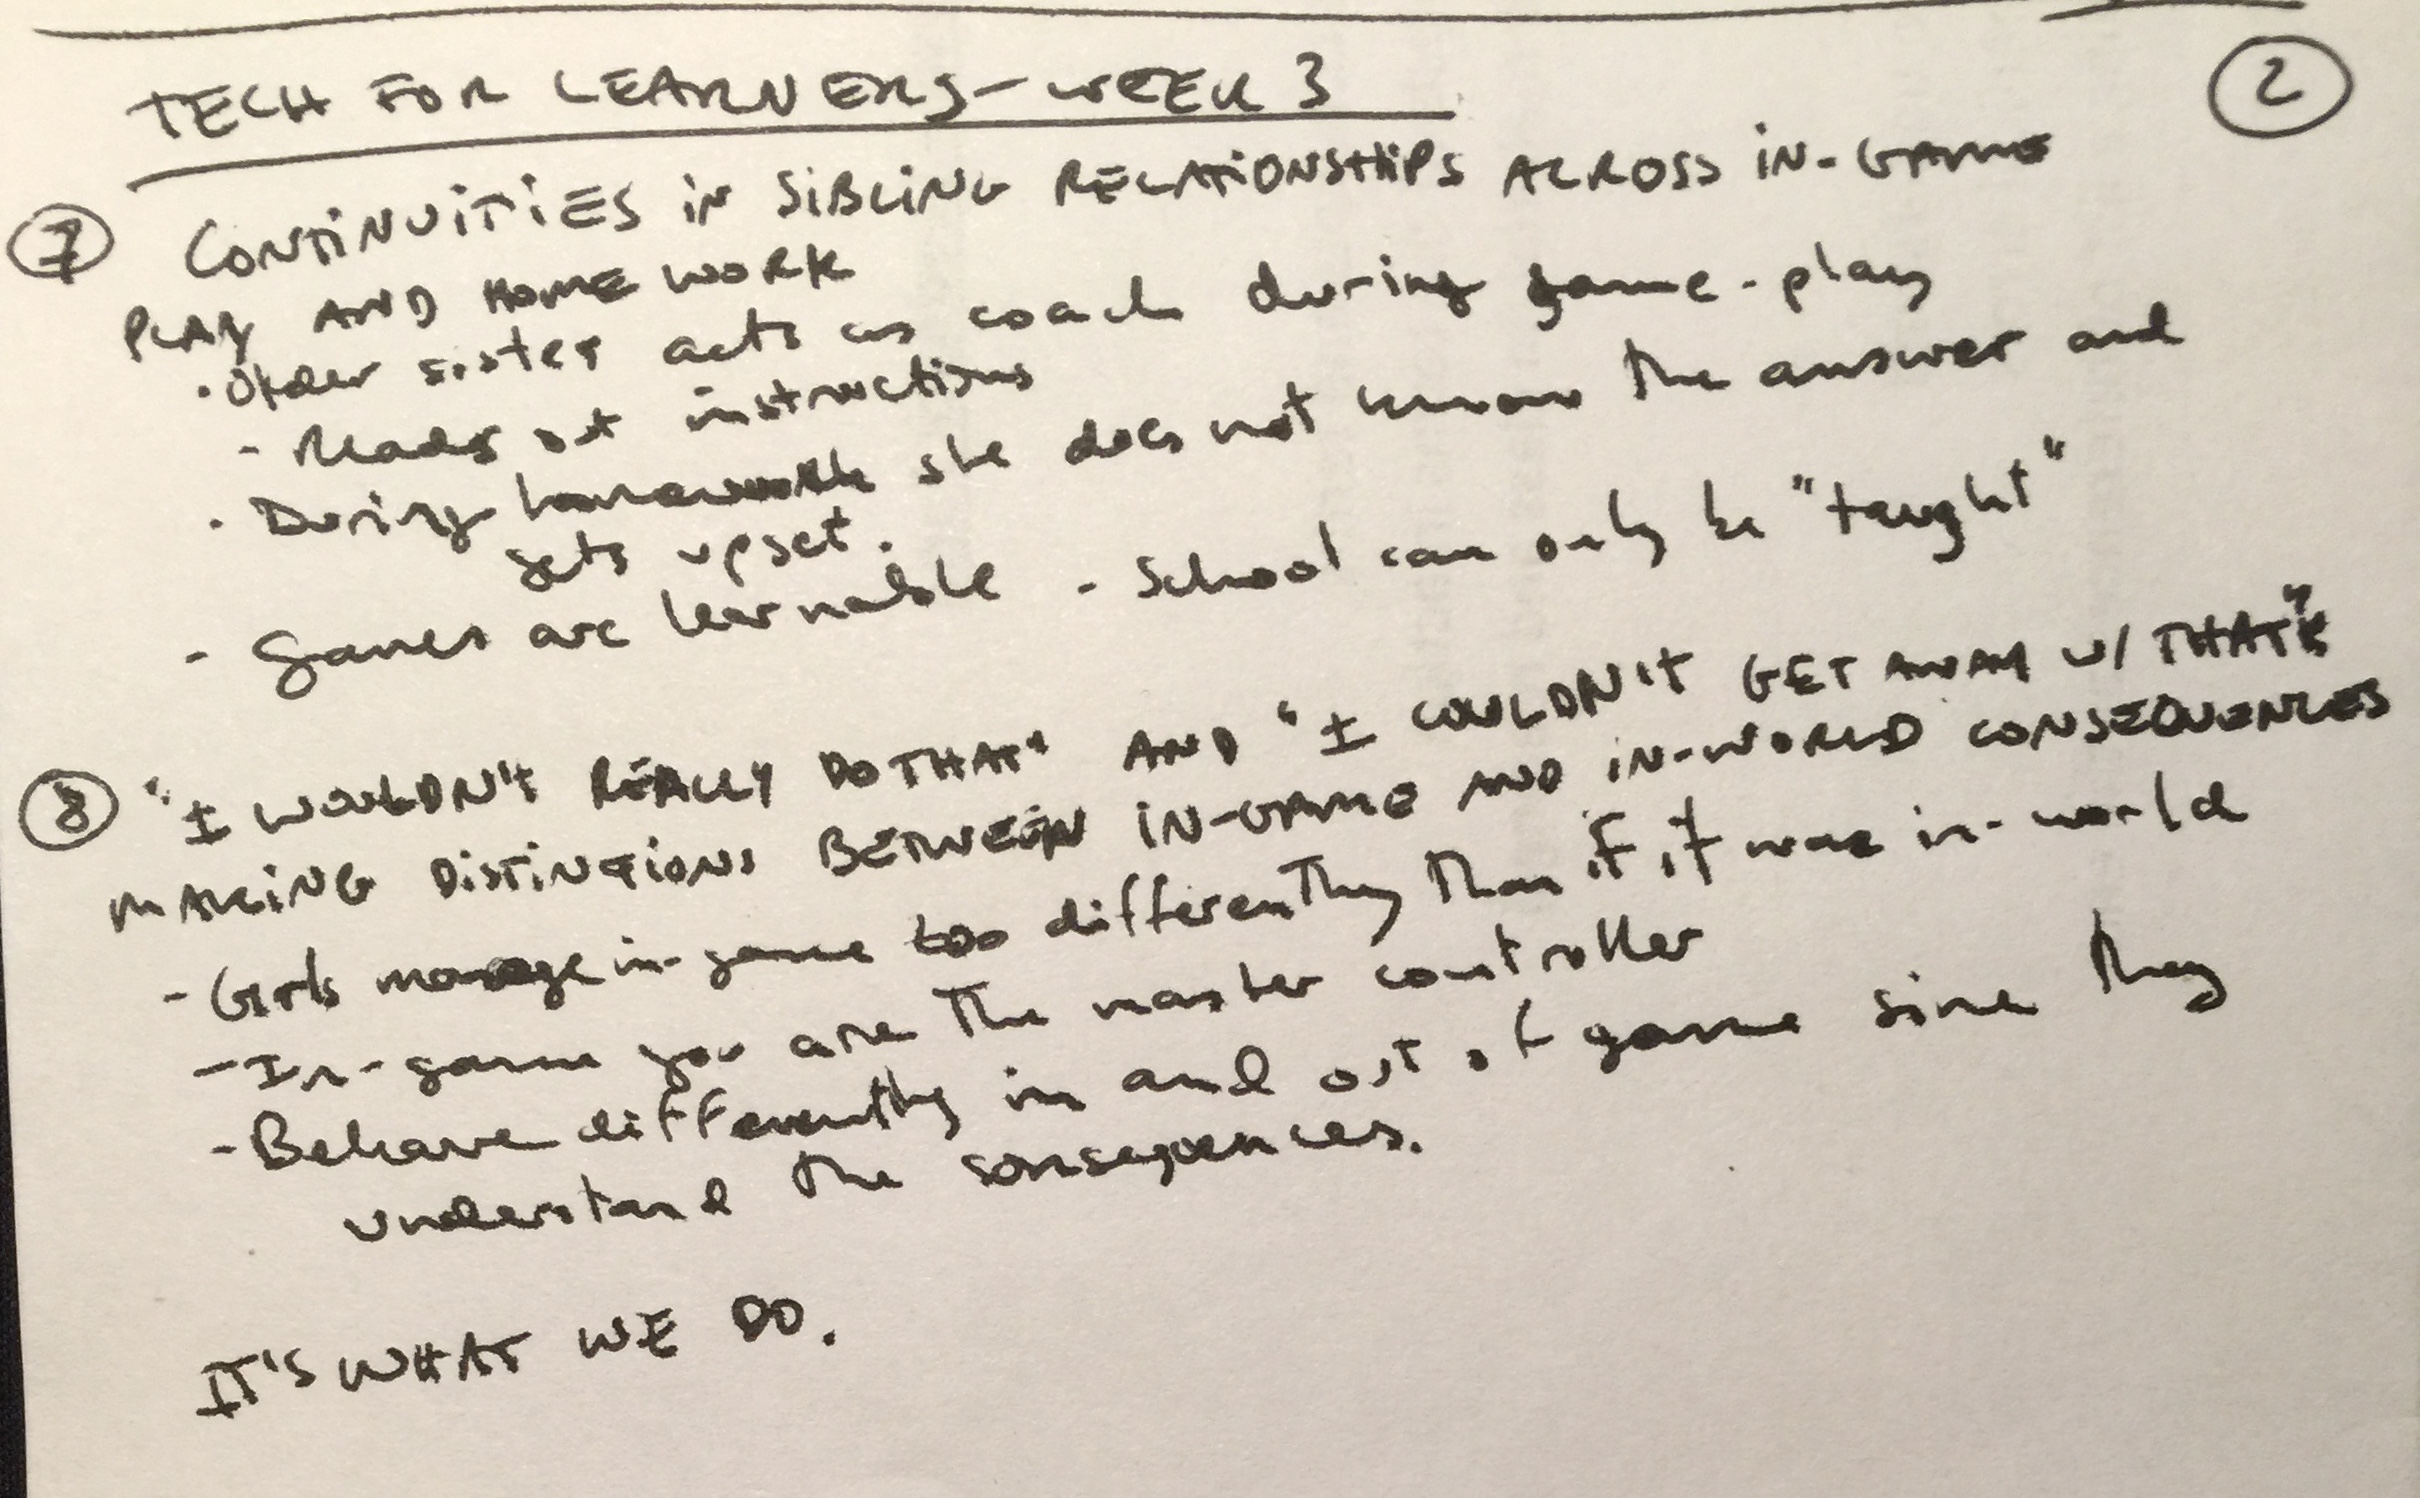 TECH FOR LEARNERS - WEEK 3
2
7 CONTINUITIES IN SIBLING RELATIONSHIPS ACROSS IN-GAME
PLAY AND HOMEWORK
· Older sister acts as coach during game-play
- Reads out instructions
· During homework she does not know the answer and
gets upset.
- Games are learnable - School can only be "taught"
8 "I WOULDN'T REALLY DO THAT" AND "I COULDN'T GET AWAY W/ THAT"
MAKING DISTINCTIONS BETWEEN IN-GAME AND IN-WORLD CONSEQUENCES
- Girls manage in-game too differently than if it was in-world
- In-game you are the master controller
- Behave differently in and out of game since they
understand the consequences.
IT'S WHAT WE DO.